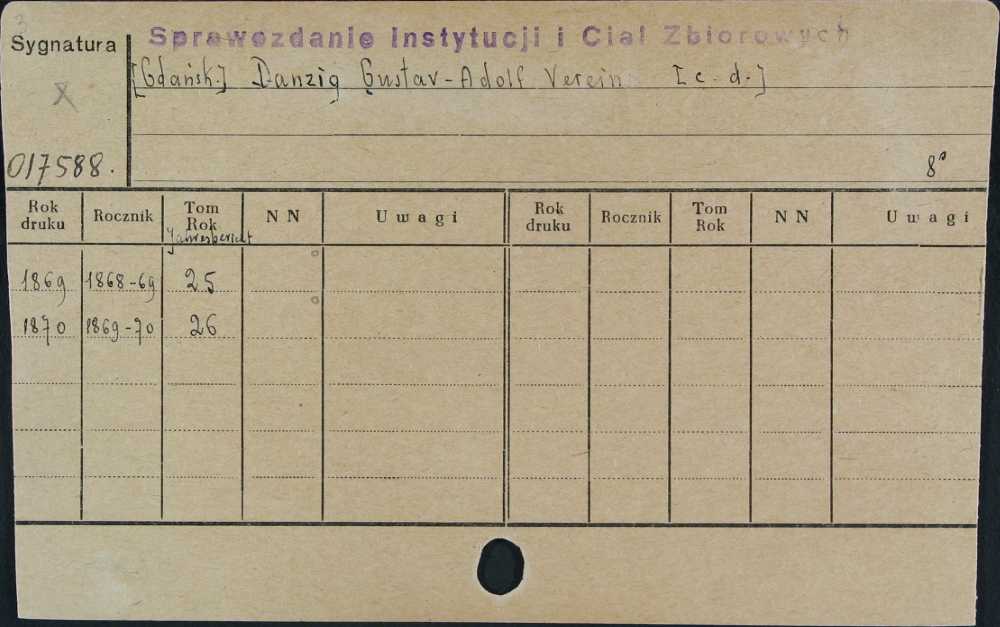 Sygnatura
Sprawozdanie Instytucji i Ciał Zbiorowych
[Gdańsk.] Danzig Gustav-Adolf Verein [c. d.]
X
017588.
8°
Rok druku Rocznik Tom Rok NN Uwagi Rok druku Rocznik Tom Rok NN Uwagi
Jahresbericht
1869 1868-69 25
1870 1869-70 26